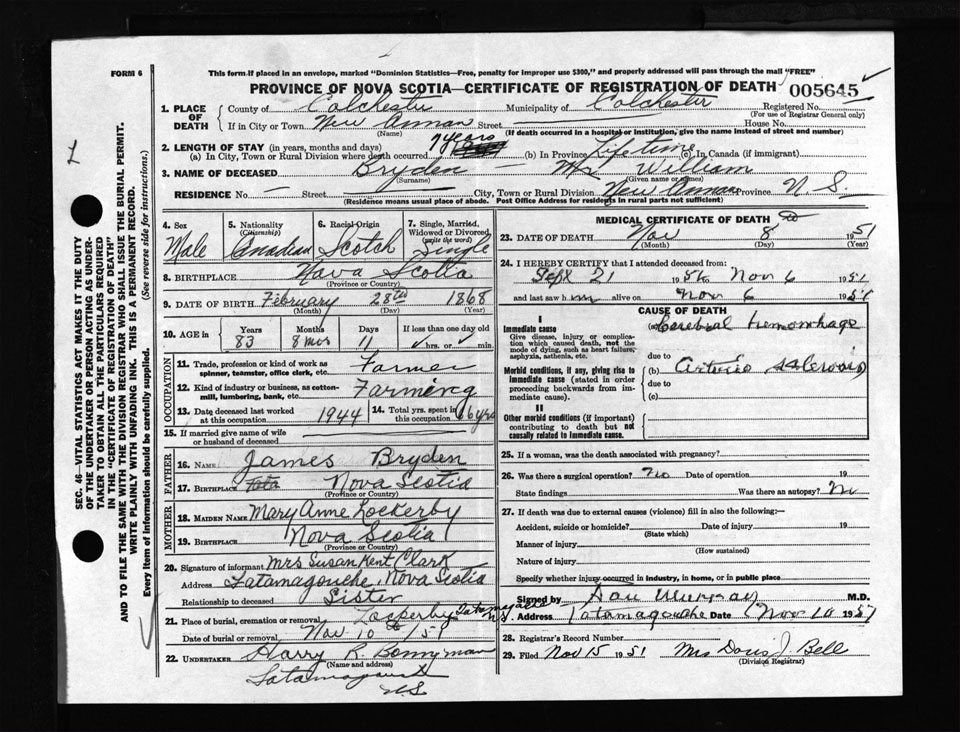 This form if placed in an envelope, marked "Dominion Statistics—Free, penalty for improper use $300," and properly addressed will pass through the mail "FREE"
FORM 6
PROVINCE OF NOVA SCOTIA—CERTIFICATE OF REGISTRATION OF DEATH 005645
SEC. 46—VITAL STATISTICS ACT MAKES IT THE DUTY
OF THE UNDERTAKER OR PERSON ACTING AS UNDER-
TAKER TO OBTAIN ALL THE PARTICULARS REQUIRED
IN THE "CERTIFICATE OF REGISTRATION OF DEATH"
AND TO FILE THE SAME WITH THE DIVISION REGISTRAR WHO SHALL ISSUE THE BURIAL PERMIT.
WRITE PLAINLY WITH UNFADING INK. THIS IS A PERMANENT RECORD.
Every item of information should be carefully supplied. (See reverse side for instructions.)
1. PLACE OF DEATH
County of Colchester Municipality of Colchester Registered No.
(For use of Registrar General only)
If in City or Town New Annan Street House No.
(Name) (If death occurred in a hospital or institution, give the name instead of street and number)
2. LENGTH OF STAY (in years, months and days)
(a) In City, Town or Rural Division where death occurred 7 years (b) In Province Lifetime (c) In Canada (if immigrant)
3. NAME OF DECEASED Bryden — Mr William
(Surname) (Given name or names)
RESIDENCE No. — Street City, Town or Rural Division New Annan Province N.S.
(Residence means usual place of abode. Post Office Address for residents in rural parts not sufficient)
4. Sex Male
5. Nationality (Citizenship) Canadian
6. Racial Origin Scotch
7. Single, Married, Widowed or Divorced (write the word) Single
8. BIRTHPLACE Nova Scotia
(Province or Country)
9. DATE OF BIRTH February 28th 1868
(Month) (Day) (Year)
10. AGE in Years Months Days If less than one day old
83 8 mos 11 hrs. or min.
OCCUPATION
11. Trade, profession or kind of work as spinner, teamster, office clerk, etc. Farmer
12. Kind of industry or business, as cotton-mill, lumbering, bank, etc. Farming
13. Date deceased last worked at this occupation 1944
14. Total yrs. spent in this occupation 66 yrs
15. If married give name of wife or husband of deceased
FATHER
16. NAME James Bryden
17. BIRTHPLACE Nova Scotia
(Province or Country)
MOTHER
18. MAIDEN NAME Mary Anne Lockerby
19. BIRTHPLACE Nova Scotia
(Province or Country)
20. Signature of informant Mrs Susan Kent Clark
Address Tatamagouche, Nova Scotia
Relationship to deceased Sister
21. Place of burial, cremation or removal Lockerby N.S.
Date of burial or removal Nov 10th / 51
22. UNDERTAKER Harry R. Bonnyman
(Name and address)
Tatamagouche
N.S.
MEDICAL CERTIFICATE OF DEATH
23. DATE OF DEATH Nov 8 1951
(Month) (Day) (Year)
24. I HEREBY CERTIFY that I attended deceased from:
Sept 21 1951 to Nov 6 1951
and last saw him alive on Nov 6 1951
CAUSE OF DEATH
I
Immediate cause (a) Cerebral hemorrhage
Give disease, injury or complication which caused death, not the mode of dying, such as heart failure, asphyxia, asthenia, etc.
due to
Morbid conditions, if any, giving rise to immediate cause (stated in order proceeding backwards from immediate cause).
(b)
due to
(c)
II
Other morbid conditions (if important) contributing to death but not causally related to immediate cause.
25. If a woman, was the death associated with pregnancy?
26. Was there a surgical operation? No Date of operation 19
State findings Was there an autopsy? No
27. If death was due to external causes (violence) fill in also the following:—
Accident, suicide or homicide? Date of injury 19
(State which)
Manner of injury
(How sustained)
Nature of injury
Specify whether injury occurred in industry, in home, or in public place
Signed by Dan Murray M.D.
Address Tatamagouche Date Nov 10 1951
28. Registrar's Record Number
29. Filed Nov 15 1951 Mrs Doris J. Bell
(Division Registrar)